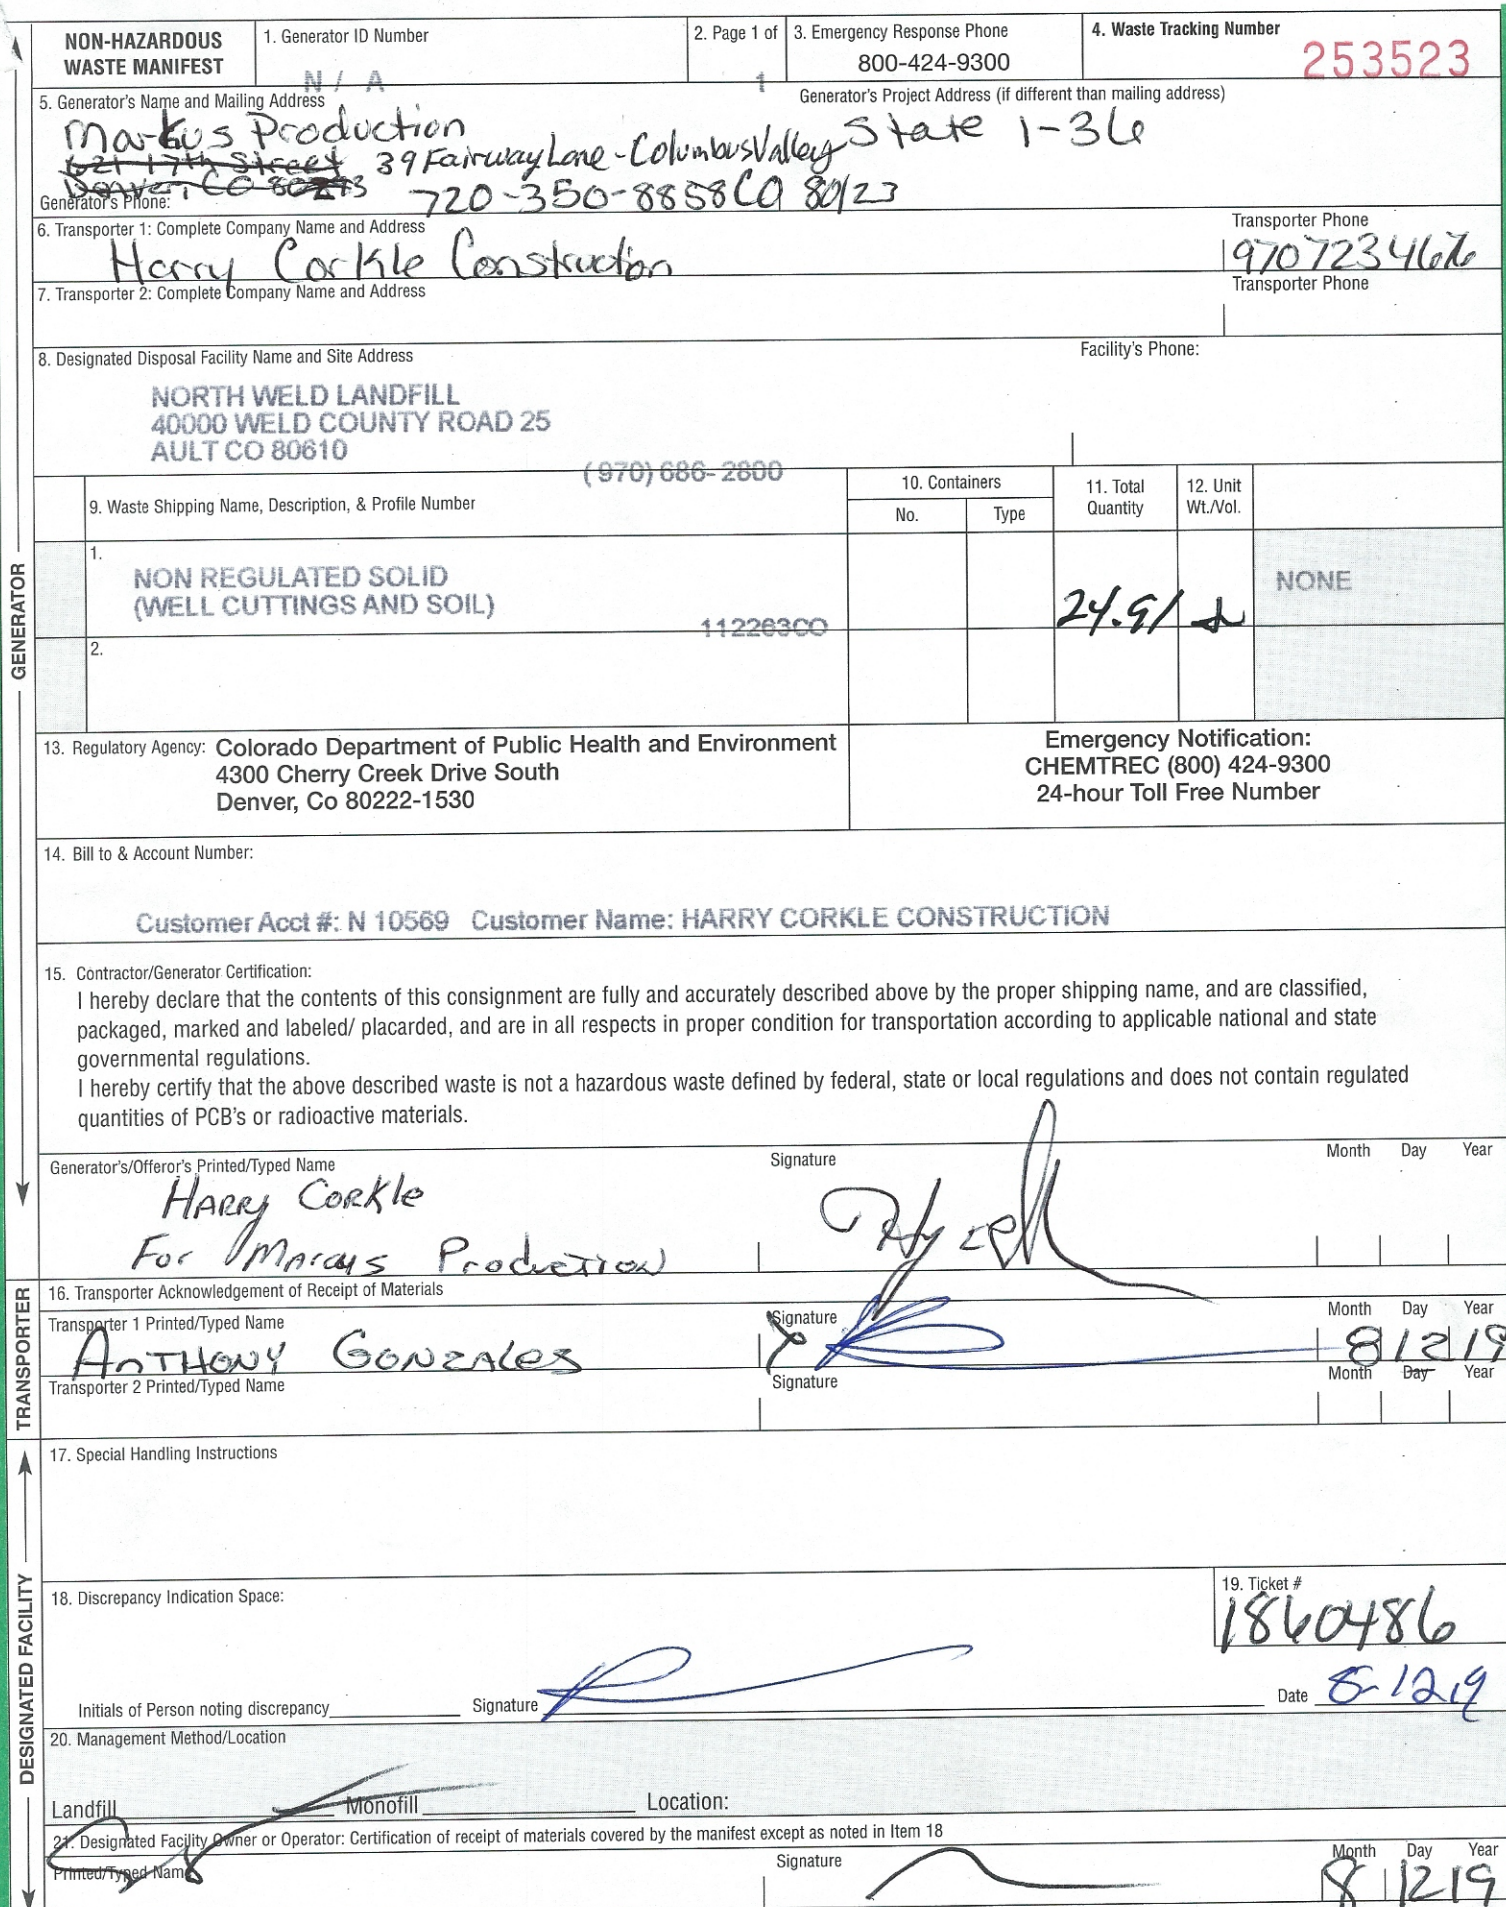 NON-HAZARDOUS
WASTE MANIFEST
1. Generator ID Number
N / A
2. Page 1 of
1
3. Emergency Response Phone
800-424-9300
4. Waste Tracking Number
253523
5. Generator's Name and Mailing Address
Generator's Project Address (if different than mailing address)
Markus Production
State 1-36
621 17th Street 39 Fairway Lane - Columbus Valley
Denver, CO
Generator's Phone: 720-350-8858 CO 80123
6. Transporter 1: Complete Company Name and Address
Transporter Phone
Harry Corkle Construction
7. Transporter 2: Complete Company Name and Address
Transporter Phone
8. Designated Disposal Facility Name and Site Address
Facility's Phone:
NORTH WELD LANDFILL
40000 WELD COUNTY ROAD 25
AULT CO 80610
(970) 686-2800
9. Waste Shipping Name, Description, & Profile Number
10. Containers
No.
Type
11. Total
Quantity
12. Unit
Wt./Vol.
1.
NON REGULATED SOLID
(WELL CUTTINGS AND SOIL)
112263CO
24.91
NONE
2.
13. Regulatory Agency: Colorado Department of Public Health and Environment
4300 Cherry Creek Drive South
Denver, Co 80222-1530
Emergency Notification:
CHEMTREC (800) 424-9300
24-hour Toll Free Number
14. Bill to & Account Number:
Customer Acct #: N 10569 Customer Name: HARRY CORKLE CONSTRUCTION
15. Contractor/Generator Certification:
I hereby declare that the contents of this consignment are fully and accurately described above by the proper shipping name, and are classified,
packaged, marked and labeled/ placarded, and are in all respects in proper condition for transportation according to applicable national and state
governmental regulations.
I hereby certify that the above described waste is not a hazardous waste defined by federal, state or local regulations and does not contain regulated
quantities of PCB's or radioactive materials.
Generator's/Offeror's Printed/Typed Name
Signature
Month Day Year
HARRY CORKle
For Marcus Production
16. Transporter Acknowledgement of Receipt of Materials
Transporter 1 Printed/Typed Name
Signature
Month Day Year
ANTHONY GONZALES
X
8 12 19
Transporter 2 Printed/Typed Name
Signature
Month Day Year
17. Special Handling Instructions
18. Discrepancy Indication Space:
19. Ticket #
1860486
Initials of Person noting discrepancy
Signature
Date 8-12-19
20. Management Method/Location
Landfill
Monofill
Location:
21. Designated Facility Owner or Operator: Certification of receipt of materials covered by the manifest except as noted in Item 18
Printed/Typed Name
Signature
Month Day Year
8 12 19
GENERATOR
TRANSPORTER
DESIGNATED FACILITY